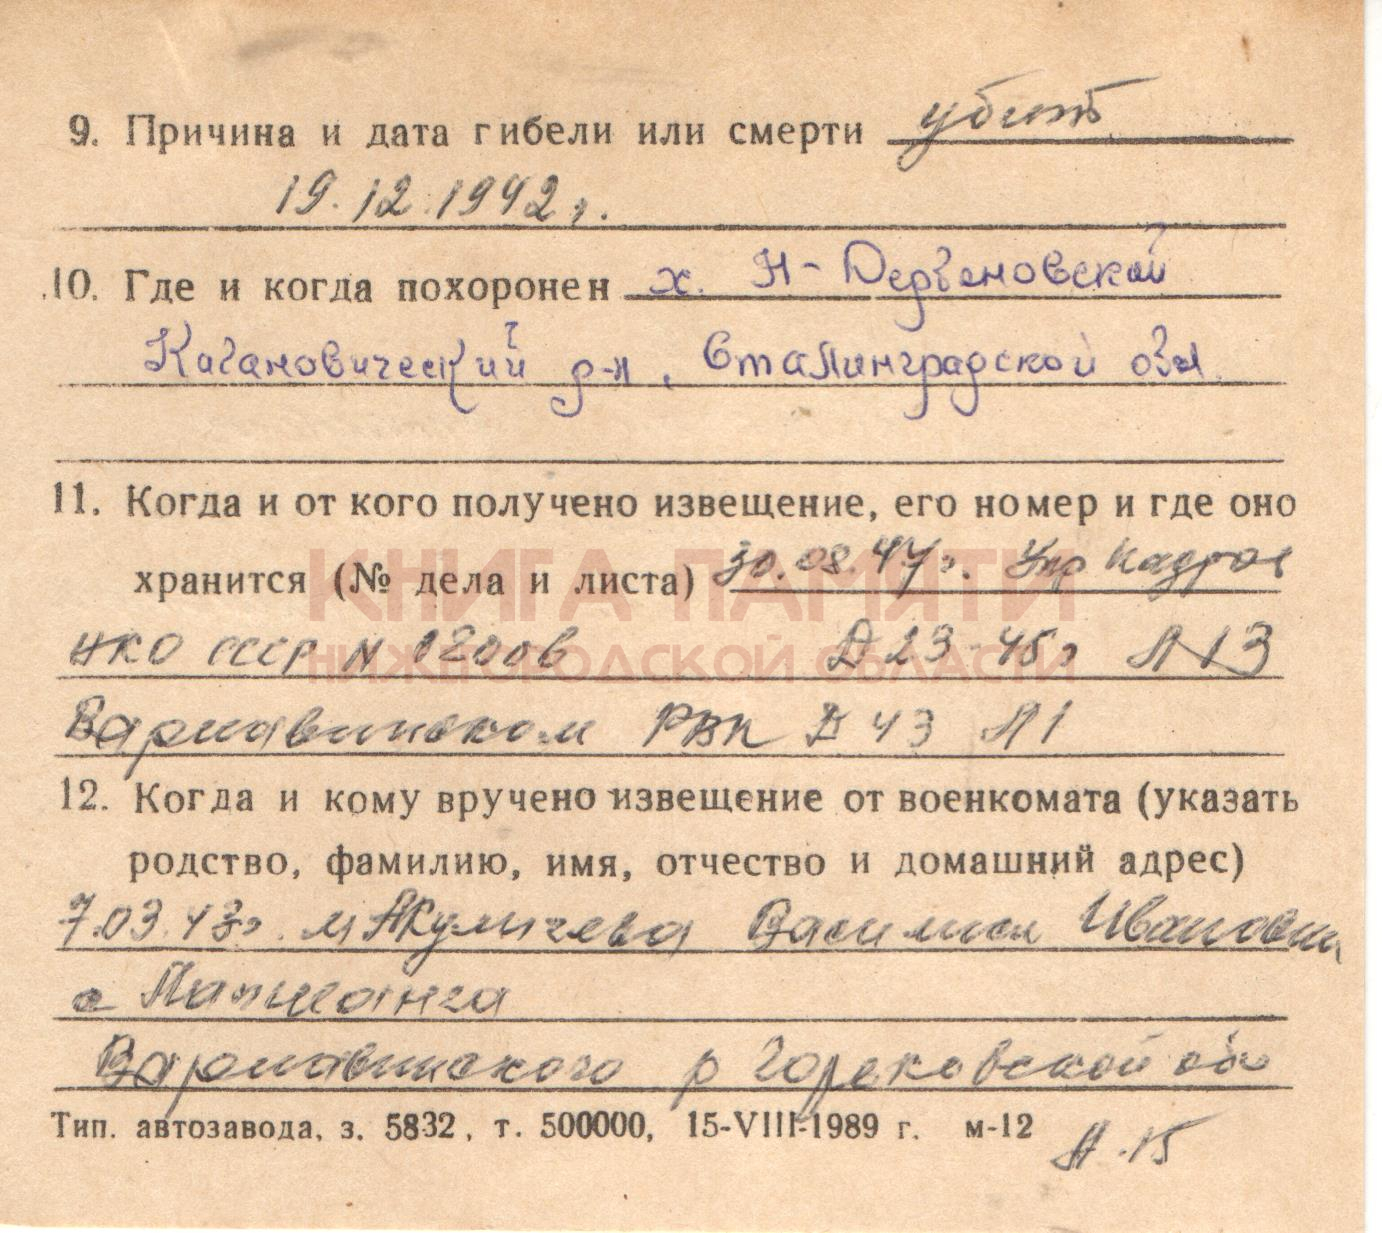 9. Причина и дата гибели или смерти убит
19.12.1942г.
10. Где и когда похоронен х. Н-Дербеновской
Кагановический р-н, Сталинградской обл.
11. Когда и от кого получено извещение, его номер и где оно
хранится (№ дела и листа) 30.08.44г. Упр кадров
НКО СССР N Д23-45г Л 13
Варнавинском РВК Д 43 Л1
12. Когда и кому вручено извещение от военкомата (указать
родство, фамилию, имя, отчество и домашний адрес)
7.03.43г. м Акуличева Васили Ивановна
Варнавинского р Горьковской об
Тип. автозавода, з. 5832, т. 500000, 15-VIII-1989 г. м-12
Л.15
КНИГА ПАМЯТИ
НИЖЕГОРОДСКОЙ ОБЛАСТИ